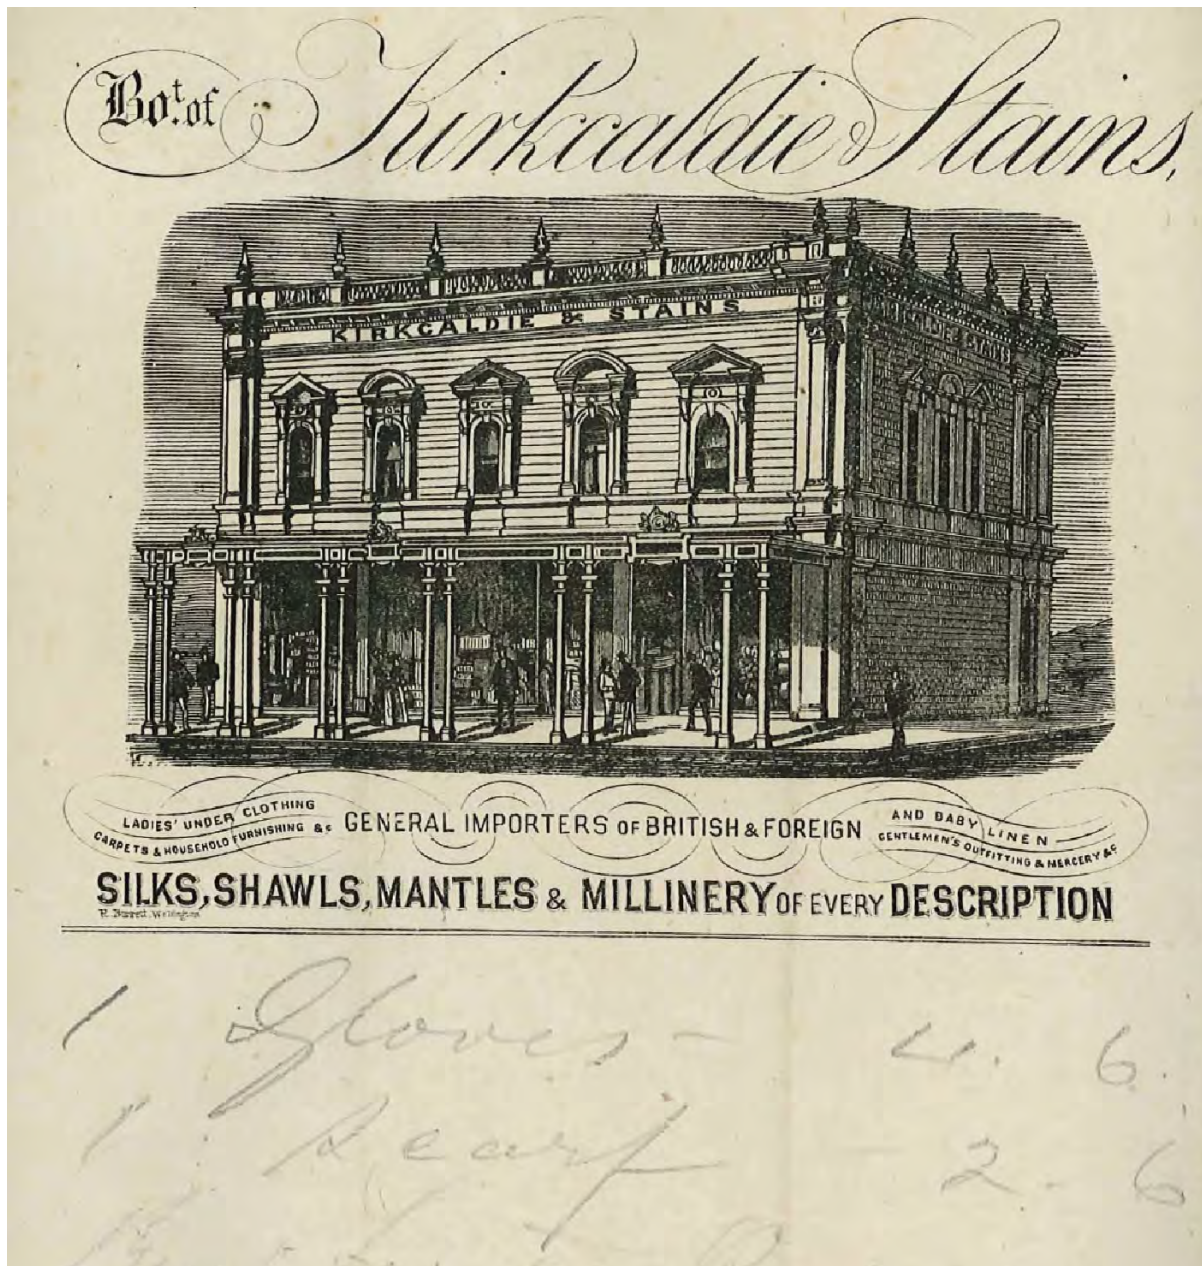 Bot. of Kirkcaldie & Stains,
KIRKCALDIE & STAINS
KIRKCALDIE & STAINS
LADIES' UNDER CLOTHING
CARPETS & HOUSEHOLD FURNISHING &c
GENERAL IMPORTERS OF BRITISH & FOREIGN
AND BABY LINEN
GENTLEMEN'S OUTFITTING & MERCERY &c
SILKS, SHAWLS, MANTLES & MILLINERY OF EVERY DESCRIPTION
R. Burrett, Wellington
1 Gloves - 4. 6.
1 Scarf - 2. 6